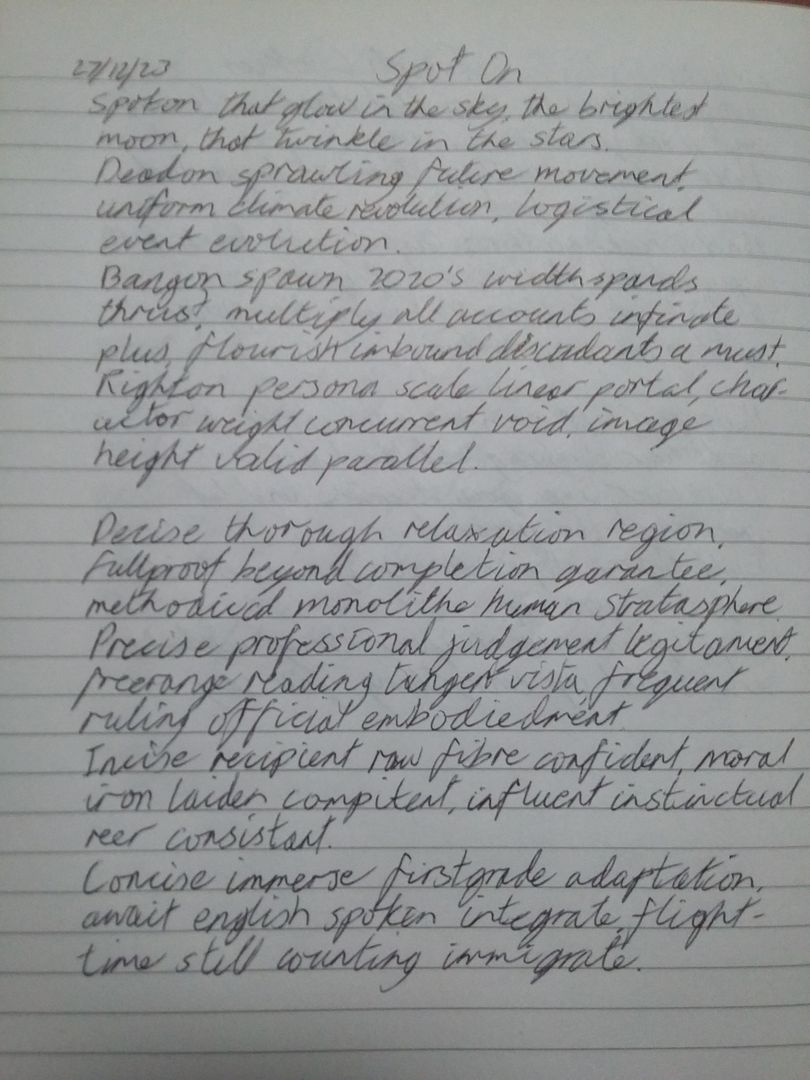 27/12/23 Spot On
Spot on that glow in the sky, the brightest
moon, that twinkle in the stars.
Deadon sprawling future movement,
uniform climate revolution, logistical
event evolution.
Bangon spawn 2020's width spands
thrust, multiply all accounts infinate
plus, flourish imbound discadants a must.
Righton persona scale linear portal, char-
actor weight concurrent void, image
height valid parallel.
Decise thorough relaxation region,
fullproof beyond completion garantee,
methodical monolithe human stratasphere.
Precise professional judgement legitament,
freerange reading tangent vista, frequent
ruling official embodiedment.
Incise recipient raw fibre confident, moral
iron laiden compitent, influent instinctual
reer consistant.
Concise immerse firstgrade adaptation,
await english spoken integrate, flight-
time still counting immigrate.